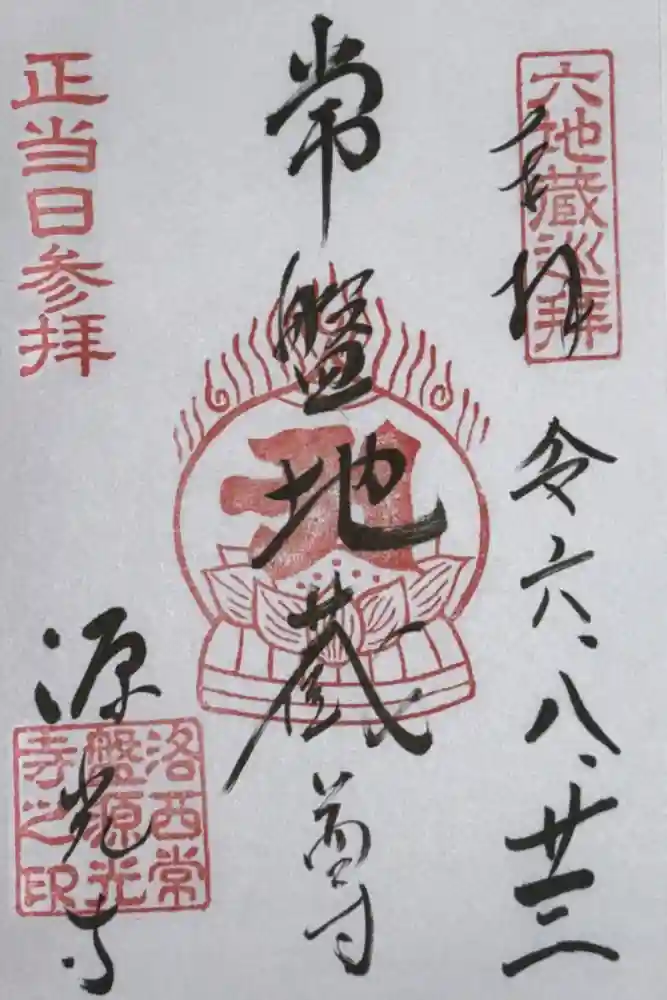 六地蔵巡拝
奉拝
令六、八、廿三
常盤地蔵尊
正当日参拝
源光寺
洛西常
盤源光
寺之印